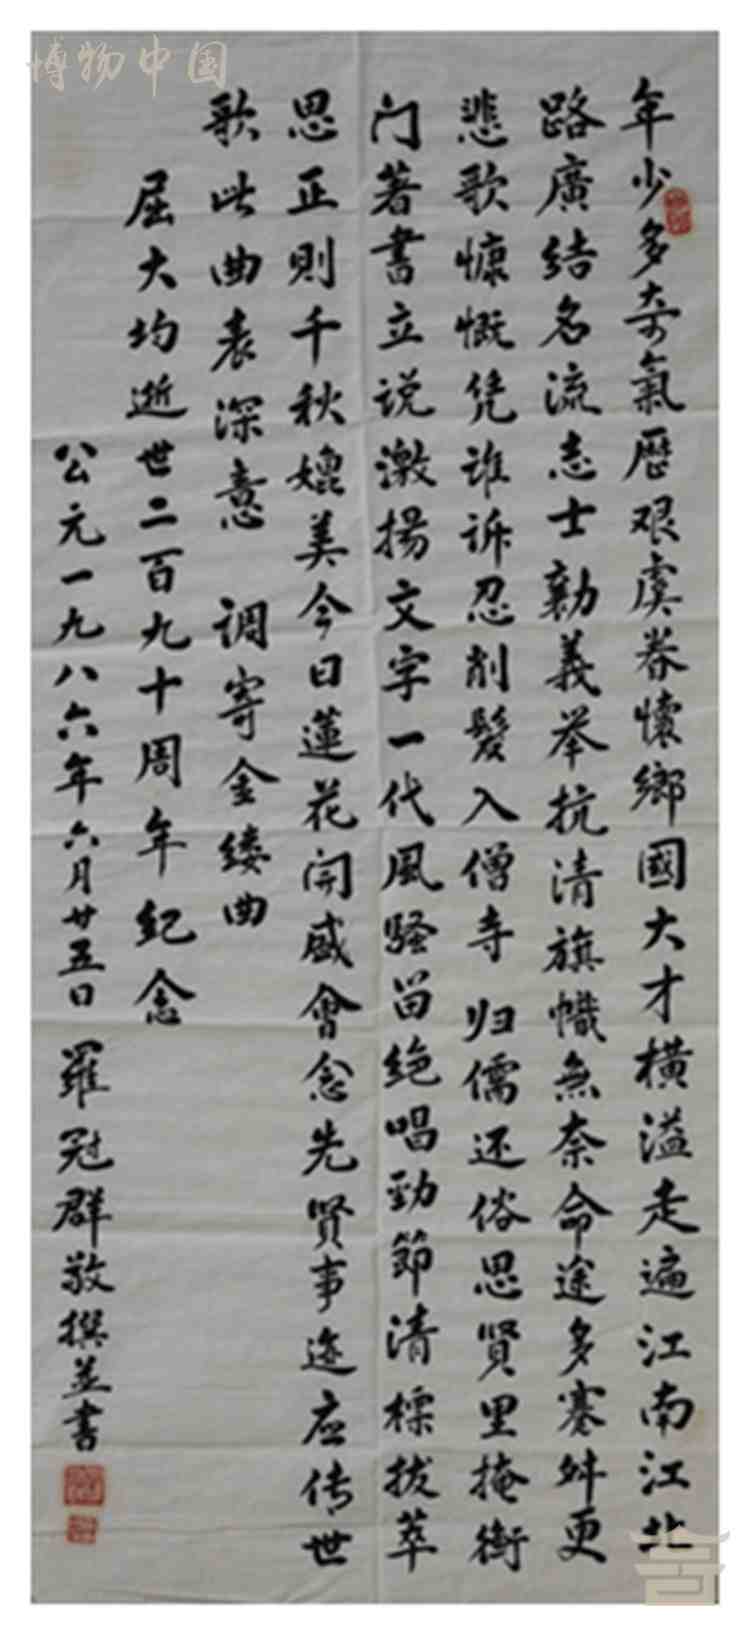 博物中国
年少多奇氣歷艰虞眷懷鄉國大才橫溢走遍江南江北
路廣结名流志士勷義举抗清旗幟無奈命途多蹇舛更
悲歌慷慨凭谁诉忍削髮入僧寺归儒还俗思贤里掩衡
门著書立说激揚文字一代風骚留绝唱勁節清標拔萃
思正則千秋媲美今日蓮花開盛會念先贤事迹应传世
歌此曲表深意 调寄金缕曲
屈大均逝世二百九十周年纪念
公元一九八六年六月廿五日 羅冠群敬撰並書